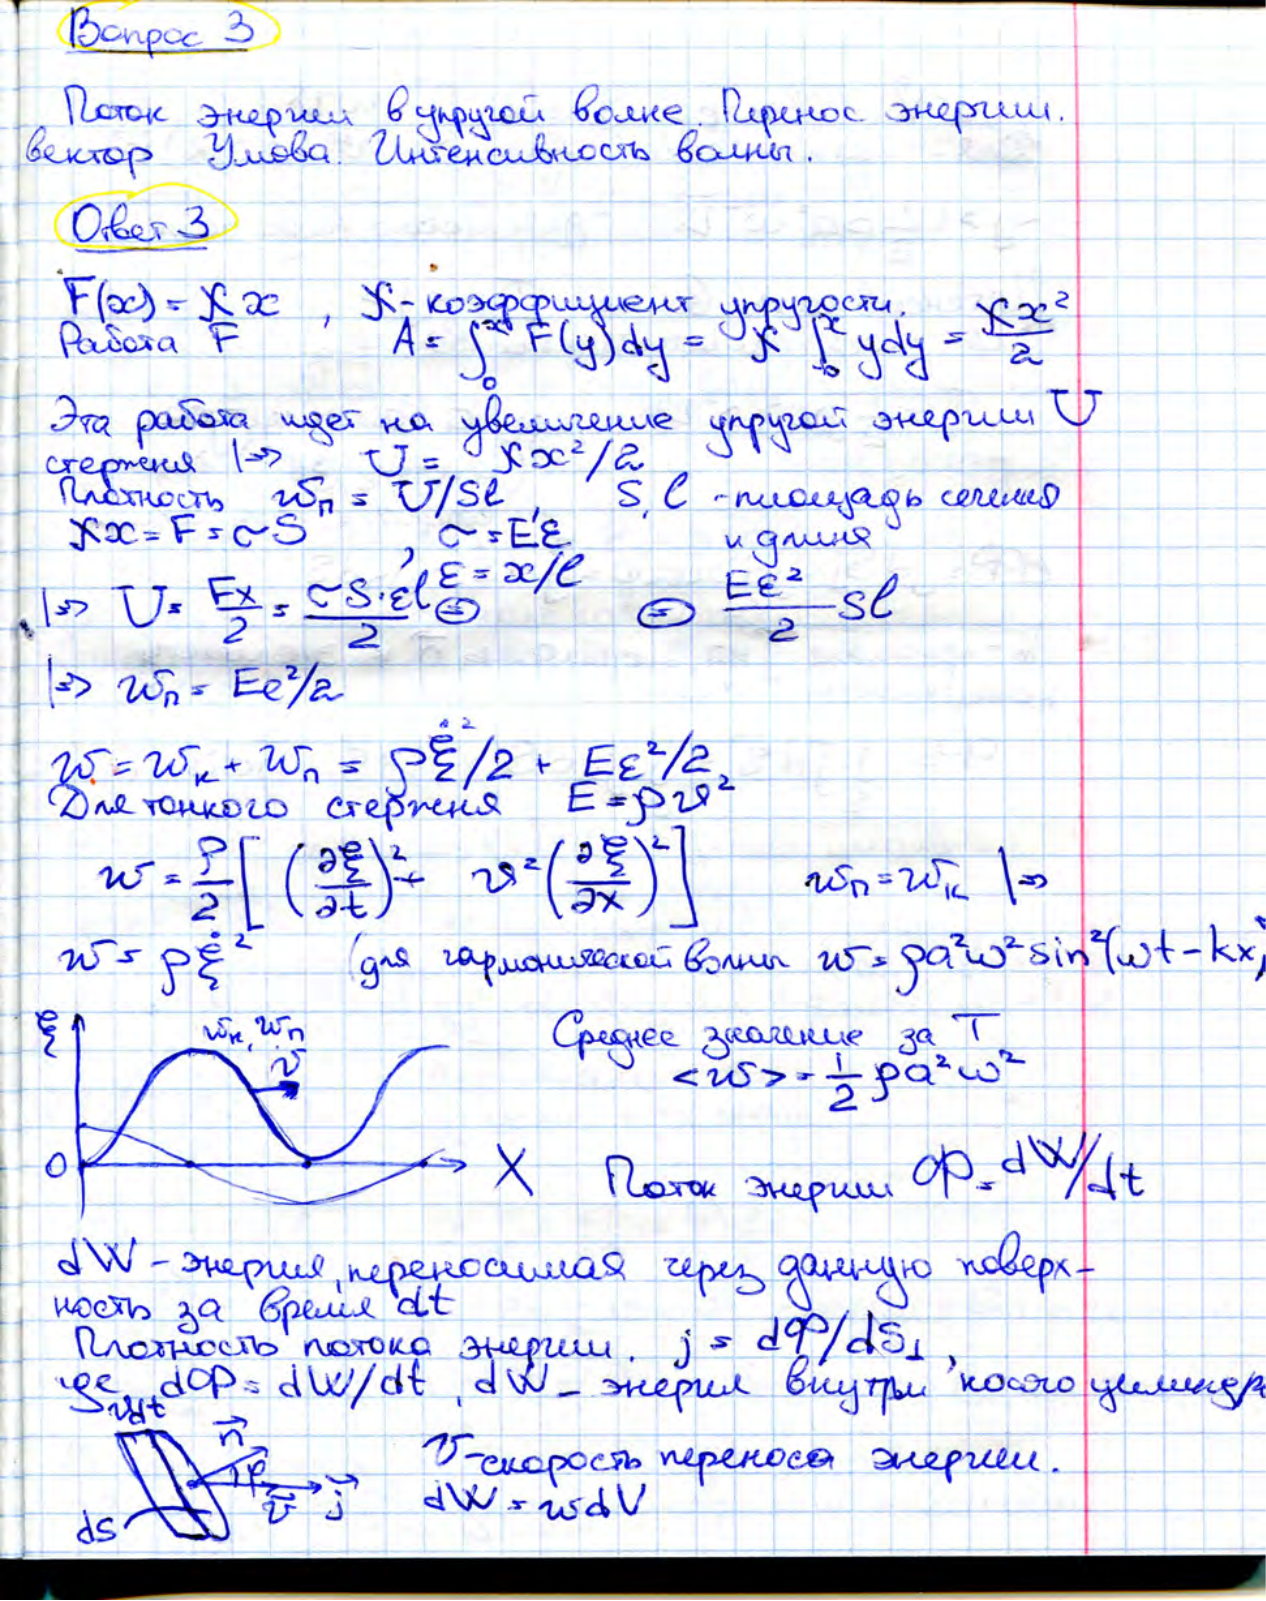 Вопрос 3
Поток энергии в упругой волне. Перенос энергии.
вектор Умова. Интенсивность волны.
Ответ 3
F(x) = ϰx , ϰ - коэффициент упругости.
Работа F A = ∫₀ˣ F(y)dy = ϰ ∫₀ˣ ydy = ϰx²/2
Эта работа идет на увеличение упругой энергии U
стержня |=> U = ϰx²/2
Плотность wп = U/Sl, S, l - площадь сечения
ϰx = F = σS , σ = Eε и длина
ε = x/l
|=> U = Fx/2 = σS·εl/2 ⊜ ⊜ Eε²/2 Sl
|=> wп = Eε²/2
w = wк + wп = ρξ̇²/2 + Eε²/2
Для тонкого стержня E = ρv²
w = ρ/2 [ (∂ξ/∂t)² + v² (∂ξ/∂x)² ] wп = wк |=>
w = ρξ̇² (для гармонической волны w = ρa²ω² sin²(ωt - kx)
ξ wк, wп
v Среднее значение за T
<w> = 1/2 ρa²ω²
0 X Поток энергии Φ = dW/dt
dW - энергия, переносимая через данную поверх-
ность за время dt
Плотность потока энергии. j = dΦ/dS⊥ ,
где dΦ = dW/dt , dW - энергия внутри косого цилиндра
vdt
n⃗
φ v - скорость переноса энергии.
v⃗ j⃗ dW = wdV
dS